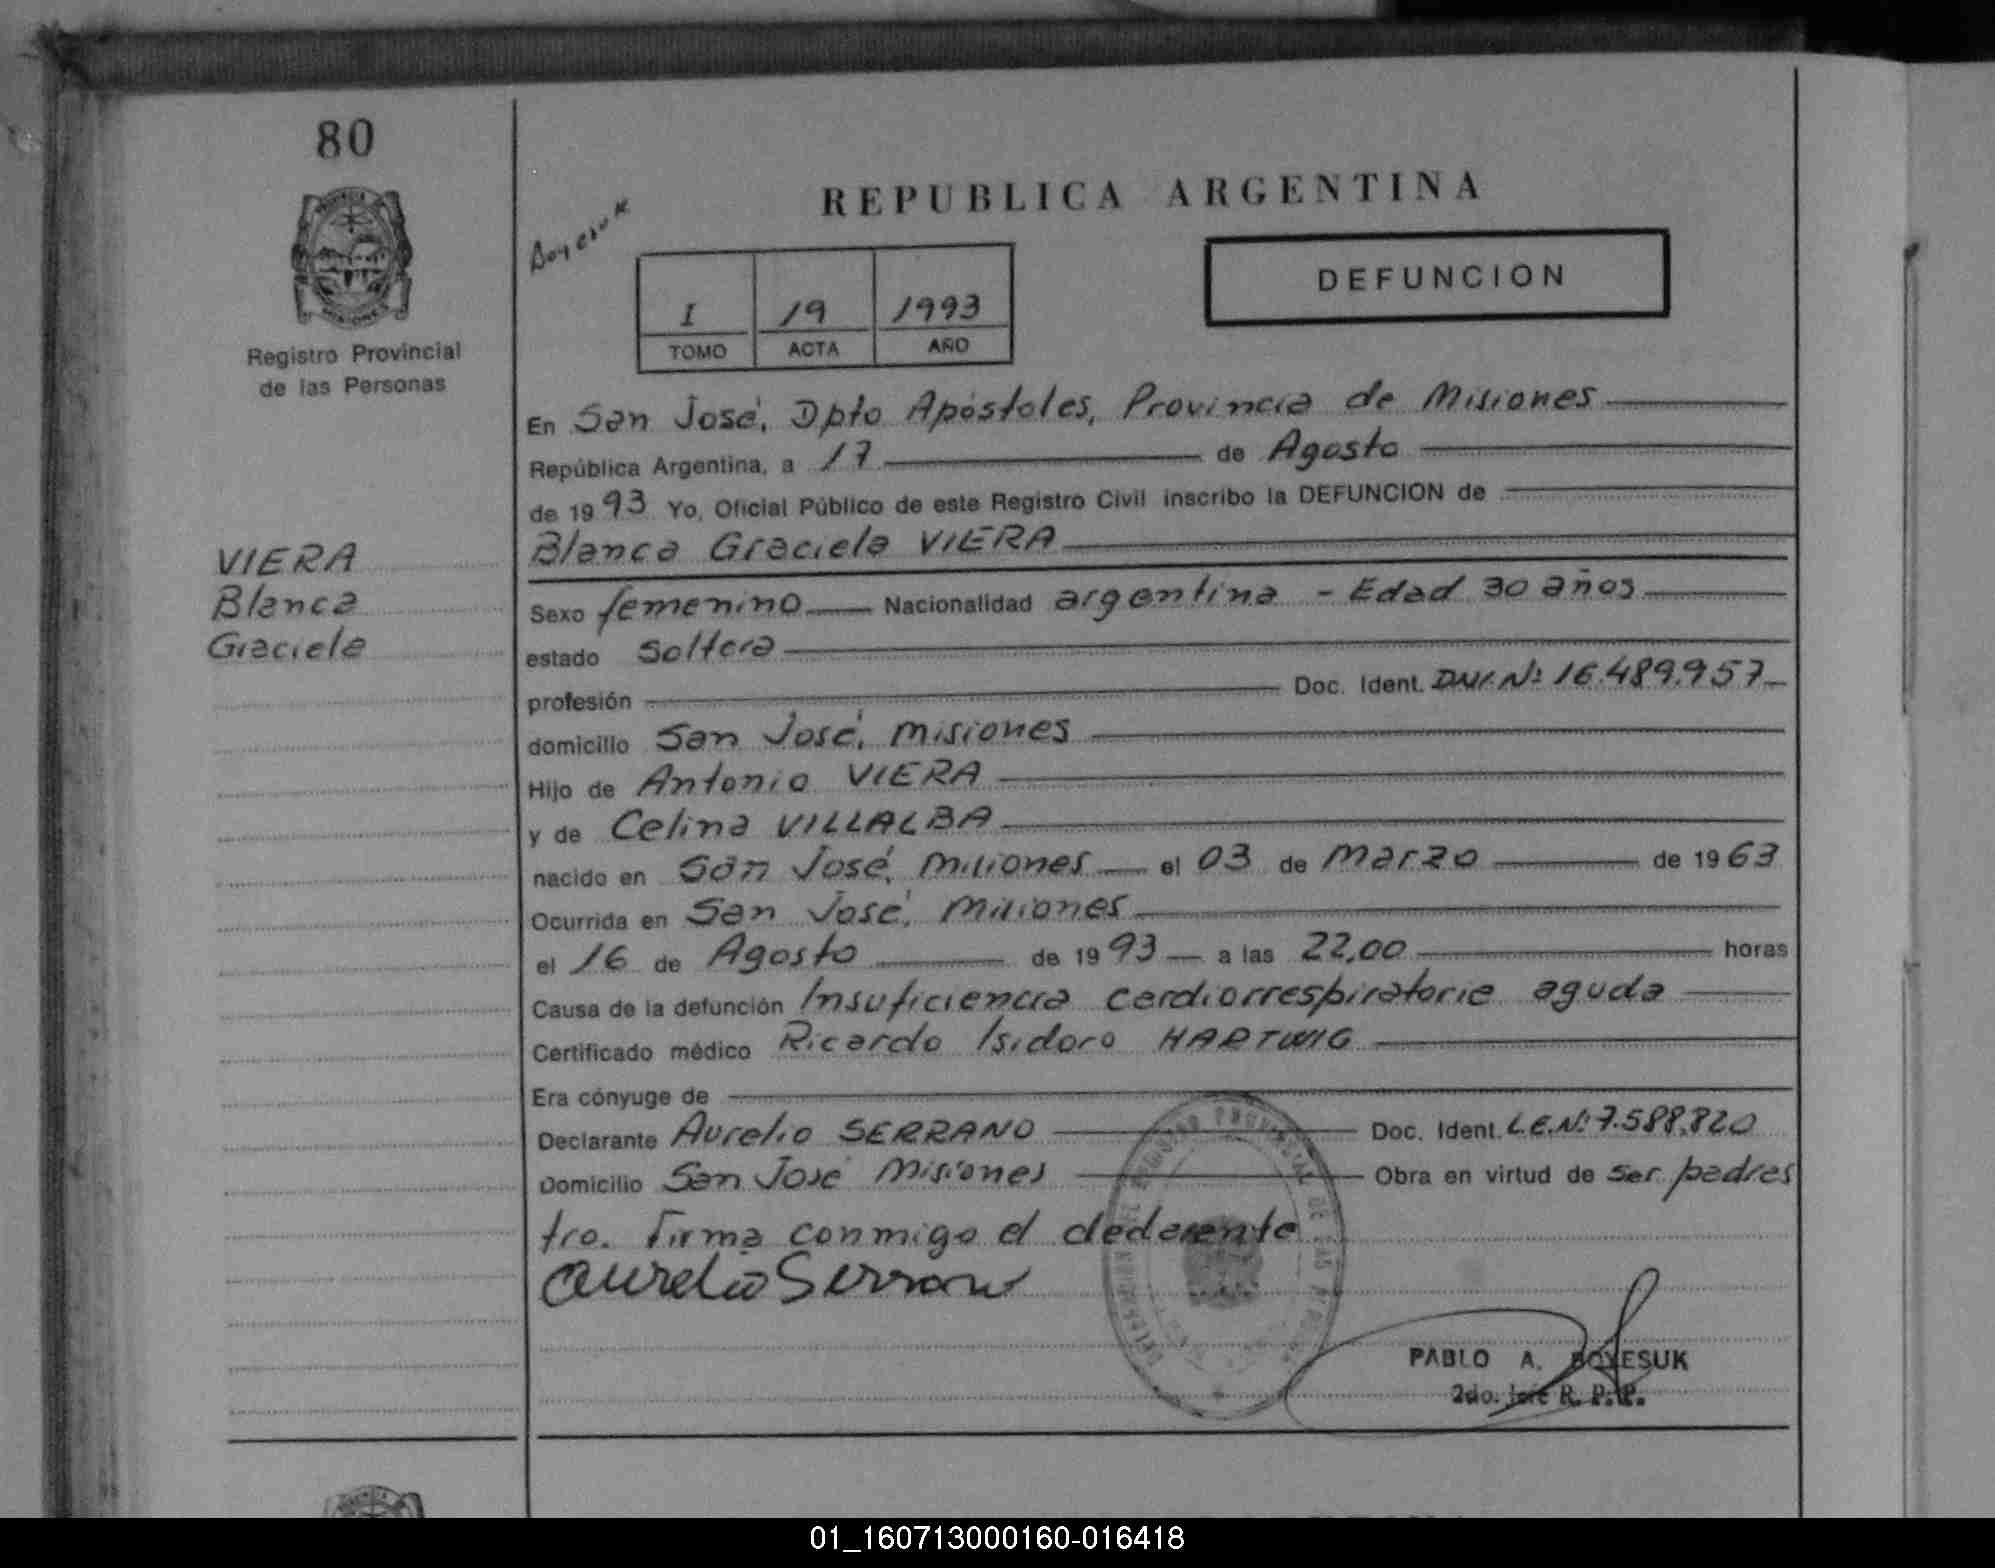 80
REPUBLICA ARGENTINA
Boyesuk
DEFUNCION
I 19 1993
TOMO ACTA AÑO
Registro Provincial
de las Personas
En San José, Dpto Apóstoles, Provincia de Misiones
República Argentina, a 17 de Agosto
de 1993 Yo, Oficial Público de este Registro Civil inscribo la DEFUNCION de
Blanca Graciela VIERA
VIERA
Blanca
Graciela
Sexo femenino Nacionalidad argentina - Edad 30 años
estado Soltera
profesión Doc. Ident. DNI. Nº 16.489.957
domicilio San José, Misiones
Hijo de Antonio VIERA
y de Celina VILLALBA
nacido en San José, Misiones el 03 de Marzo de 1963
Ocurrida en San José, Misiones
el 16 de Agosto de 1993 a las 22,00 horas
Causa de la defunción Insuficiencia cardiorrespiratoria aguda
Certificado médico Ricardo Isidoro HARTWIG
Era cónyuge de
Declarante Aurelio SERRANO Doc. Ident. L.E. Nº 7.588.820
Domicilio San José Misiones Obra en virtud de ser padras
tro. Firma conmigo el declarante
Aurelio Serrano
PABLO A. BOYESUK
2do. Jefe R. P. P.
01_160713000160-016418